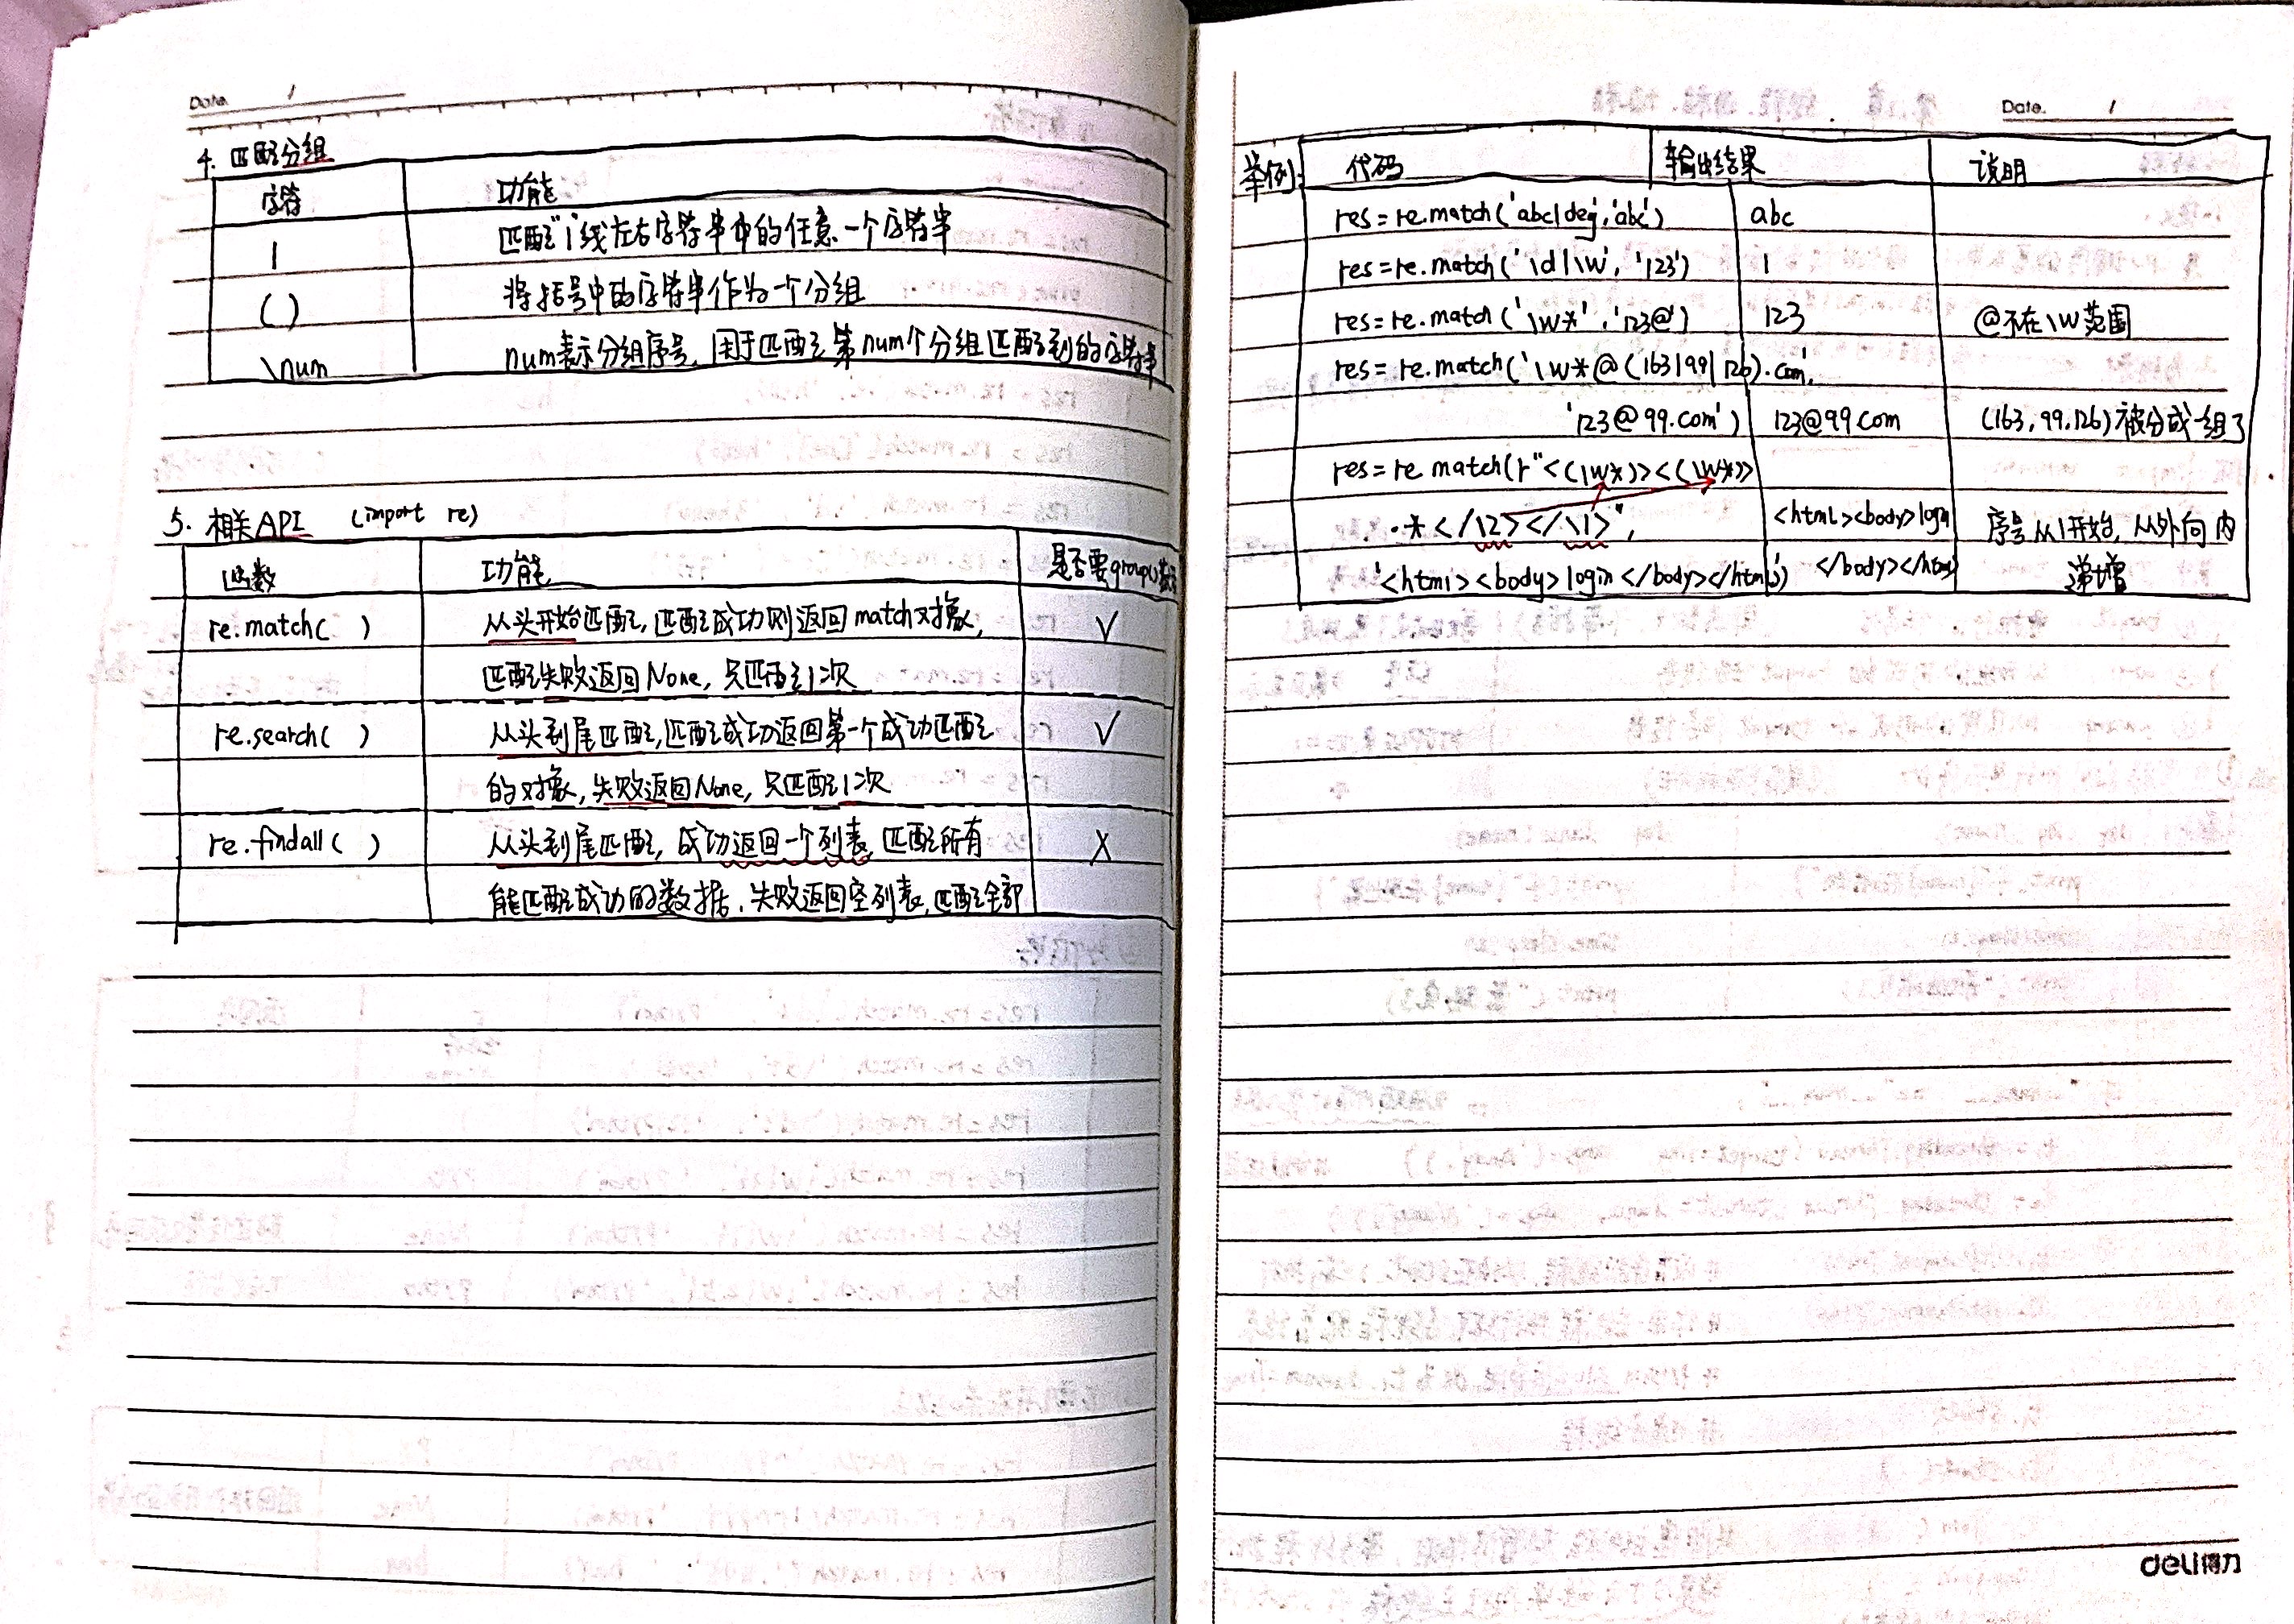 Date. /
4. 匹配分组
字符 功能
| 匹配"|"线左右字符串中的任意一个字符串
( ) 将括号中的字符串作为一个分组
\num num表示分组序号,用于匹配第num个分组匹配到的字符串
5. 相关API (import re)
函数 功能 是否要group()
re.match( ) 从头开始匹配,匹配成功则返回match对象,
匹配失败返回None,只匹配1次
√
re.search( ) 从头到尾匹配,匹配成功返回第一个成功匹配
的对象,失败返回None,只匹配1次
√
re.findall( ) 从头到尾匹配,成功返回一个列表,匹配所有
能匹配成功的数据.失败返回空列表,匹配全部
X
Date. /
举例: 代码 输出结果 说明
res=re.match('abc|deg','abc') abc
res=re.match('\d|\w', '123') 1
res=re.match('\w*','123@') 123 @不在\w范围
res=re.match('\w*@(163|99|126).com',
'123@99.com') 123@99.com (163,99,126)被分成一组了
res=re match(r"<(\w*)><(\w*)>
.*</\2></\1>", <html><body>login 序号从1开始,从外向内
'<html><body>login</body></html>') </body></html> 递增
deli得力